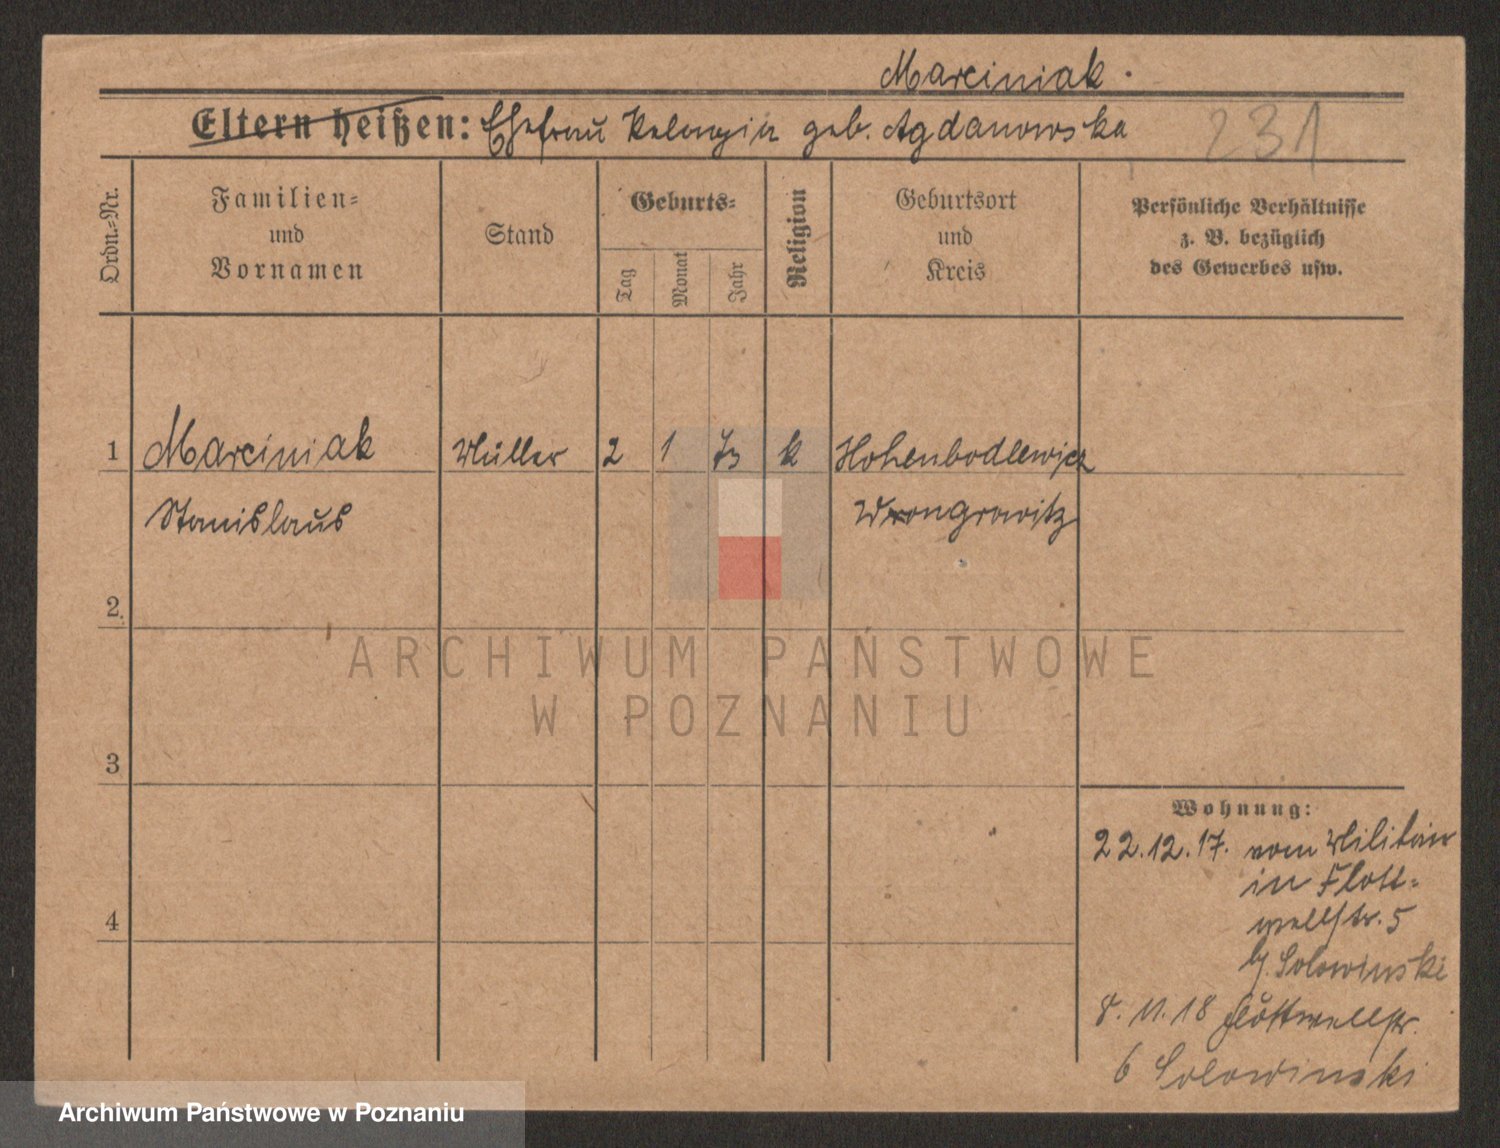 Marciniak.
Eltern heißen: Ehefrau Pelagia geb. Agdanowska
231
Ordn.-Nr.
Familien-
und
Vornamen
Stand
Geburts-
Tag
Monat
Jahr
Religion
Geburtsort
und
Kreis
Persönliche Verhältnisse
z. B. bezüglich
des Gewerbes usw.
1 Marciniak Müller 2 1 73 k
Stanislaus Wongrowitz
2.
3
4
Wohnung:
22.12.17. vom Militär
in Flott-
wellstr. 5
b. Solowinski
8.11.18 Flottwellstr.
6 Solowinski
ARCHIWUM PAŃSTWOWE
W POZNANIU
Archiwum Państwowe w Poznaniu